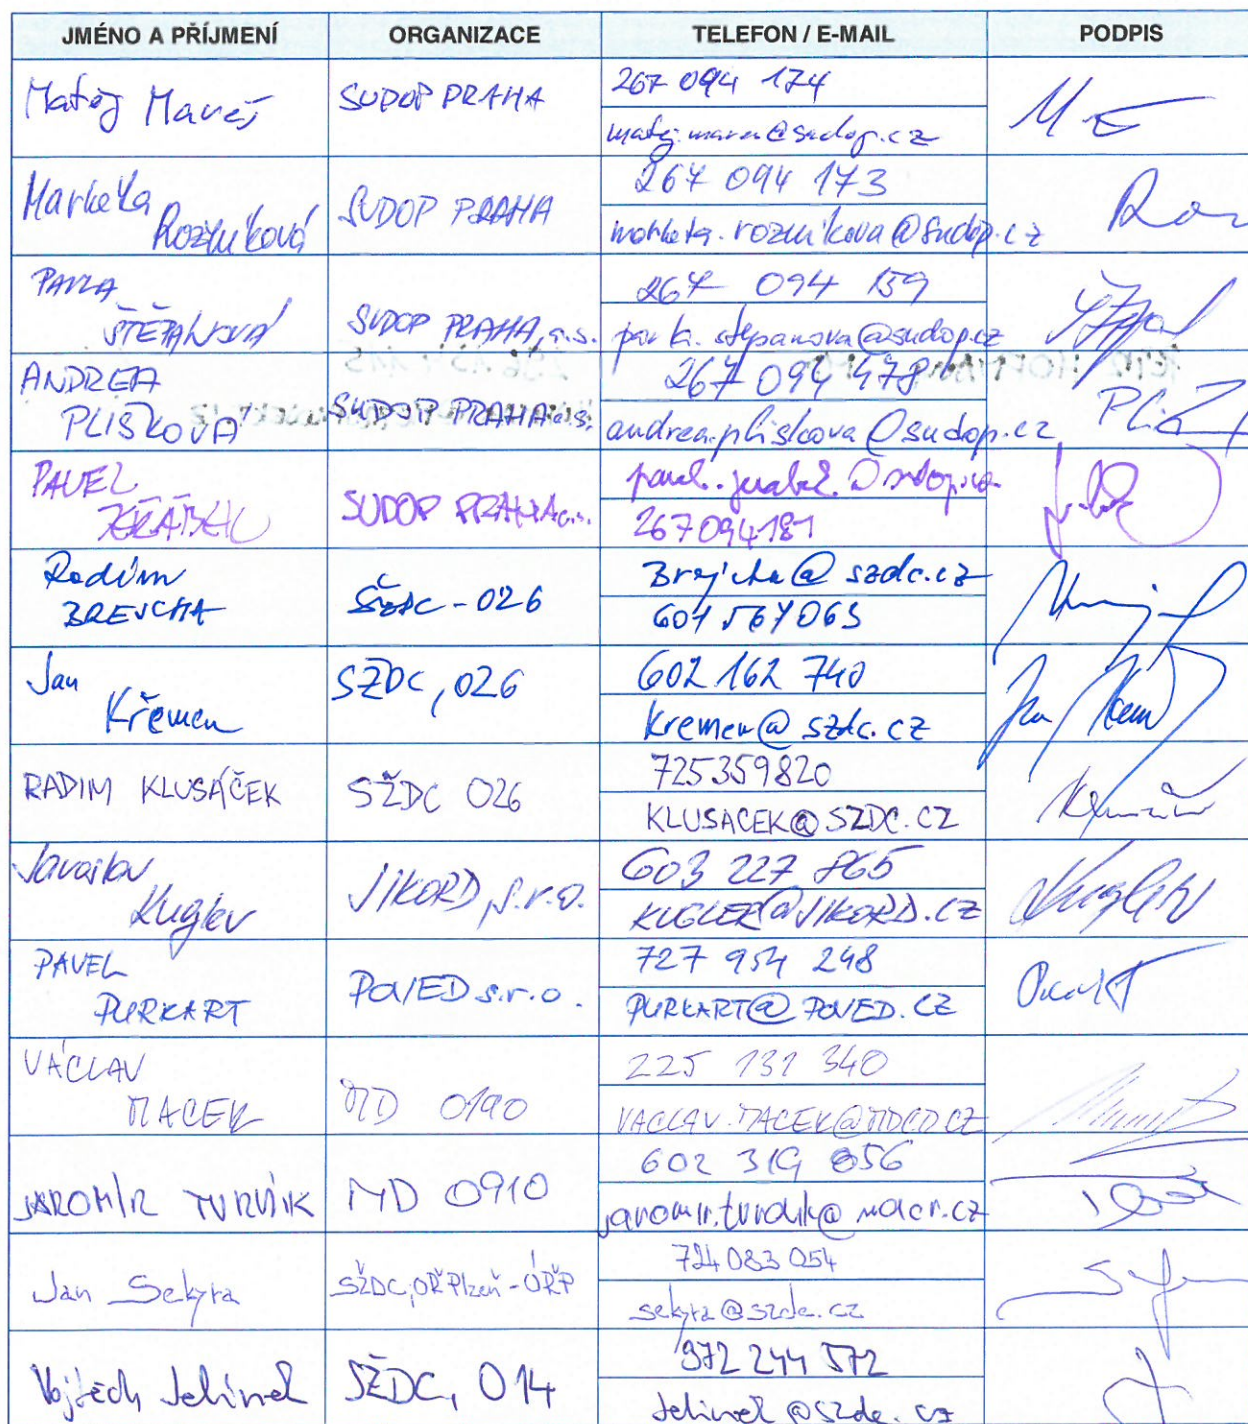 JMÉNO A PŘÍJMENÍ ORGANIZACE TELEFON / E-MAIL PODPIS
Matěj Mareš SUDOP PRAHA 267 094 174
matej.mares@sudop.cz
Markéta Rozmíková SUDOP PRAHA 267 094 173
marketa.rozmikova@sudop.cz
PAVLA ŠTĚPÁNOVÁ SUDOP PRAHA, a.s. 267 094 159
pavla.stepanova@sudop.cz
ANDREA PLIŠKOVÁ SUDOP PRAHA a.s. 267 094 478
andrea.pliskova@sudop.cz
PAVEL SUDOP PRAHA a.s.
267094181
Radim BREJCHA SŽDC - 026 Brejcha@szdc.cz
601 567 063
Jan Křemen SŽDC, 026 602 162 740
kremen@szdc.cz
RADIM KLUSÁČEK SŽDC 026 725359820
KLUSACEK@SZDC.CZ
Jaroslav Kugler JIKORD, s.r.o. 603 227 865
KUGLER@JIKORD.CZ
PAVEL PURKART POVED s.r.o. 727 954 248
PURKART@POVED.CZ
VÁCLAV MACEK MD 0190 225 131 340
VACLAV.MACEK@MDCR.CZ
JAROMÍR MD 0910 602 319 856
jaromir.turdik@mdcr.cz
Jan Sekyra SŽDC, OŘ Plzeň - ÚŘP 724 083 054
sekyra@szdc.cz
Vojtěch Jelínek SŽDC, 014 972 244 572
Jelinek@szdc.cz